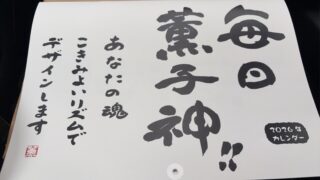 毎日
薫子神!!
2026年
カレンダー
あなたの魂
こきみよいリズムで
デザインします